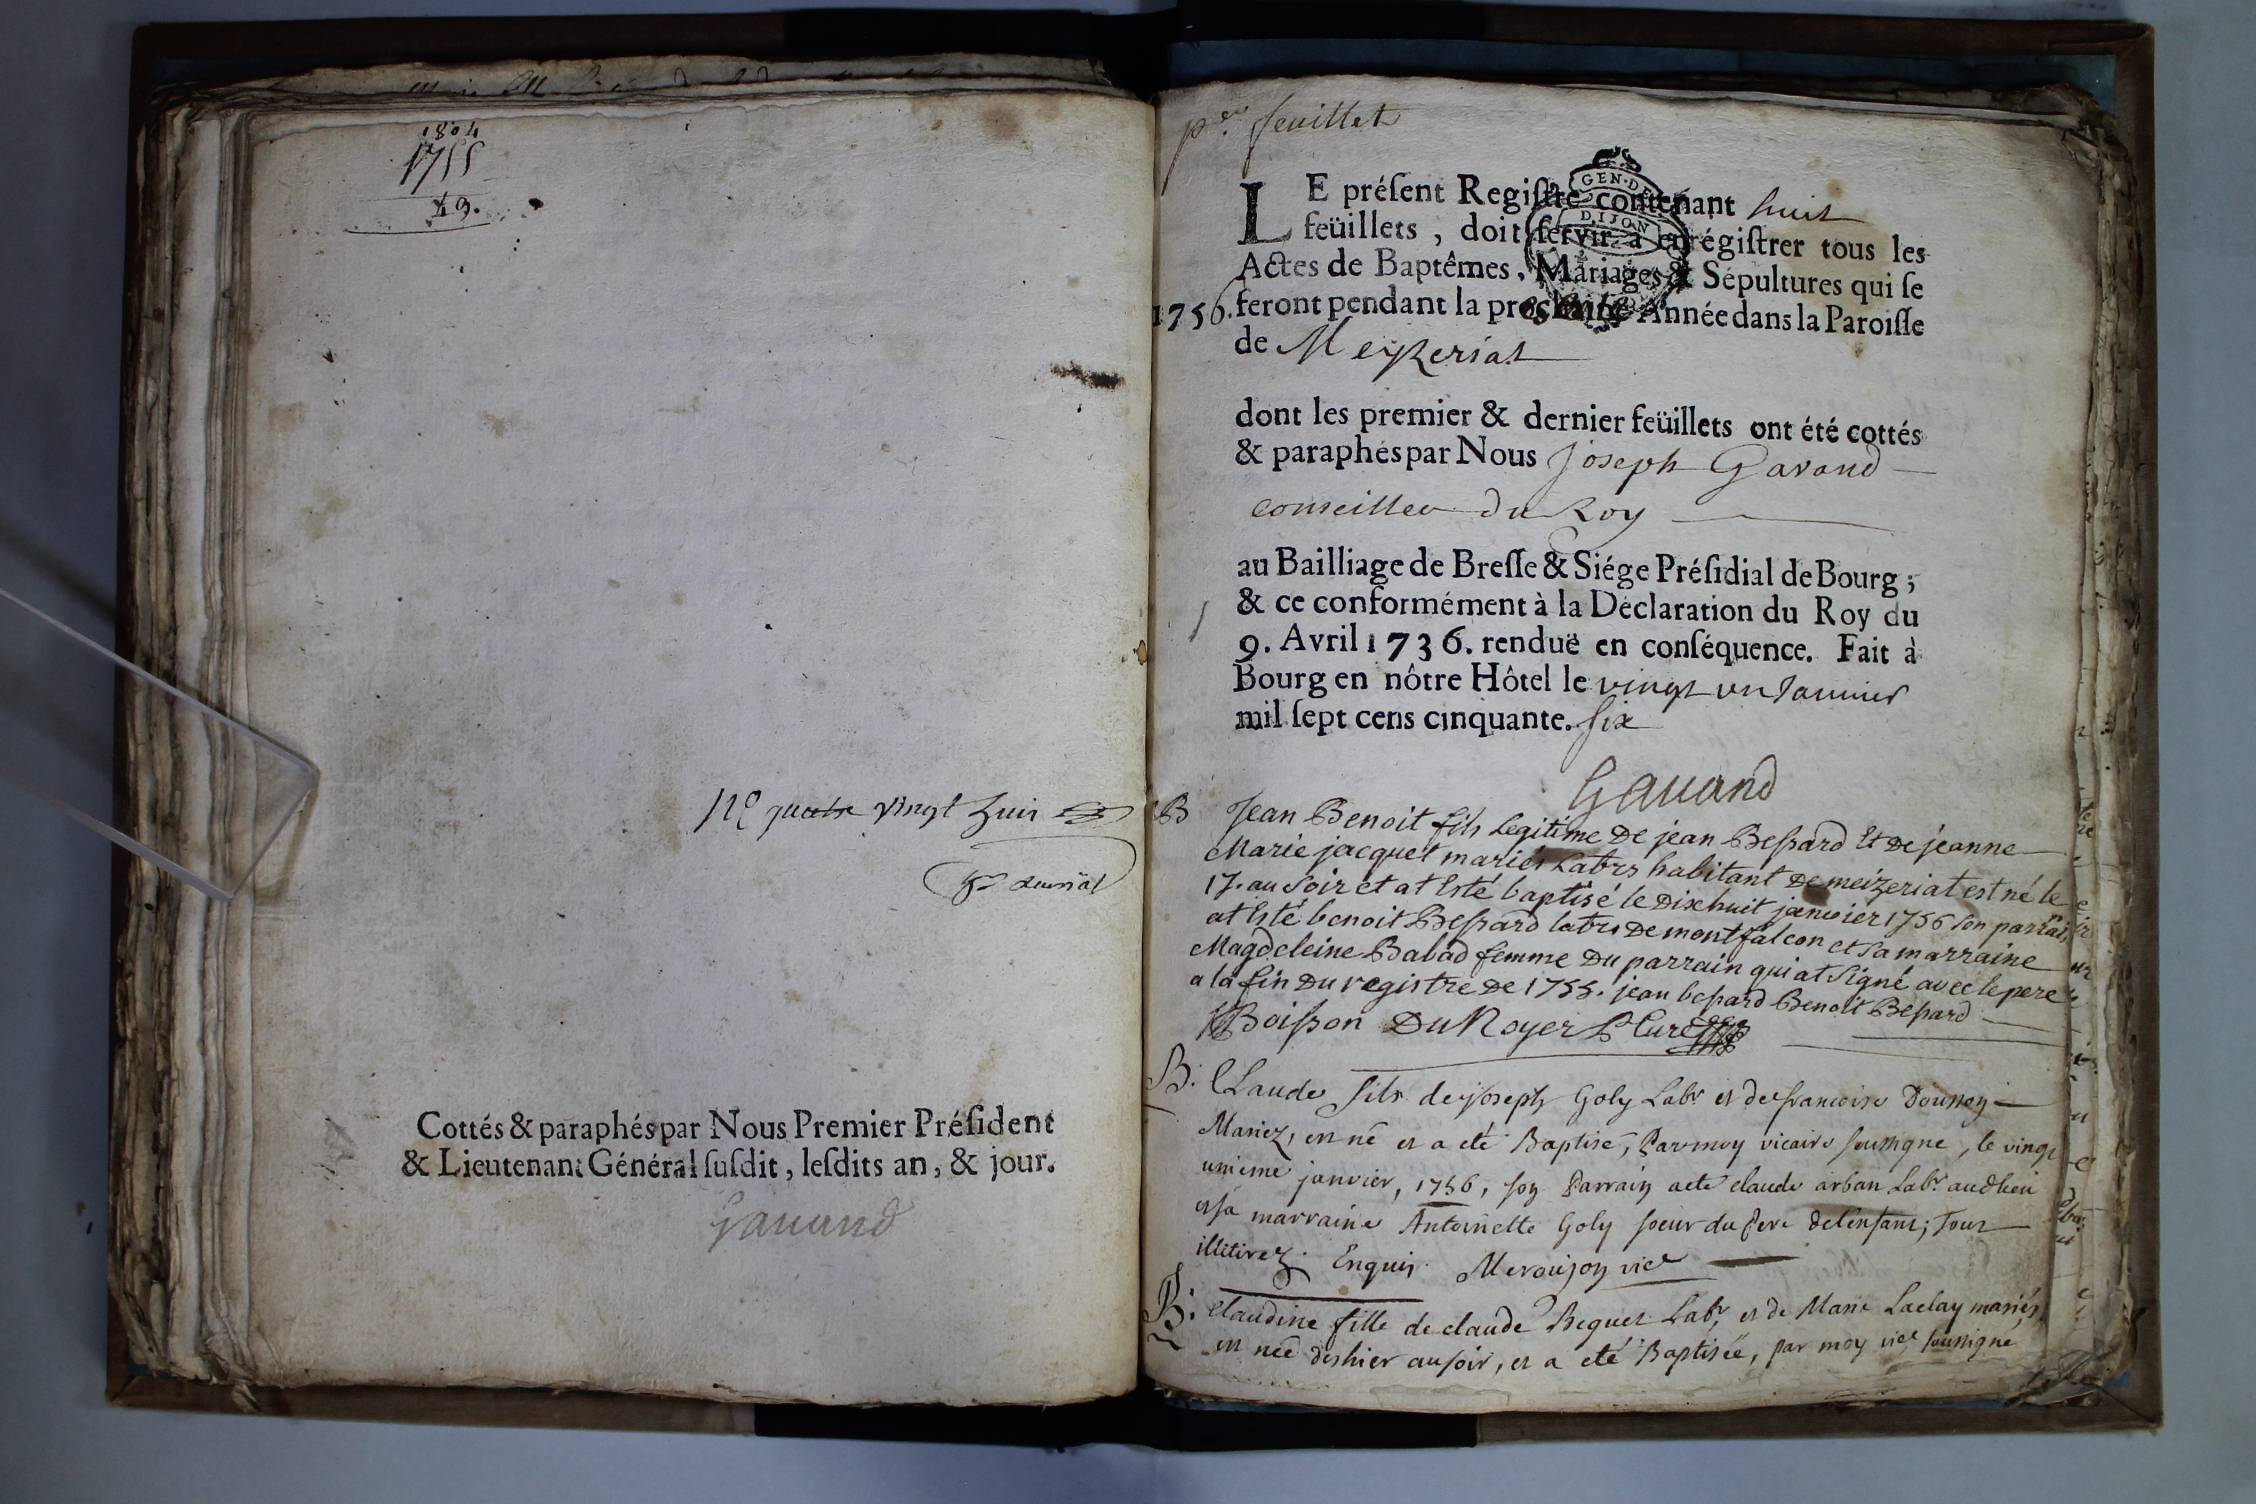 1804
1755
49.
No quatre vingt huit
Cottés & paraphés par Nous Premier Président
& Lieutenant Général susdit, lesdits an, & jour.
Gauand
per. feuillet
GEN. DE
DIJON
LE présent Registre contenant huit
feüillets, doit servir à enrégistrer tous les
Actes de Baptêmes, Mariages & Sépultures qui se
1756. feront pendant la presente Année dans la Paroisse
de Meyzeriat
dont les premier & dernier feüillets ont été cottés
& paraphés par Nous Joseph Gavand
conseiller du Roy
au Bailliage de Bresse & Siége Présidial de Bourg;
& ce conformément à la Déclaration du Roy du
9. Avril 1736. renduë en conséquence. Fait à
Bourg en nôtre Hôtel le vingt un Janvier
mil sept cens cinquante. six
Gauand
B Jean Benoit fils Legitime De jean Bessard Et De jeanne
Marie jacquet mariés Labrs habitant De meizeriat est né le
17. au soir et at Esté baptisé le Dixhuit janvier 1756 son parrain
at Esté benoit Bessard labr De montfalcon et sa marraine
Magdeleine Babad femme Du parrain qui at signé avec le pere
a la fin Du registre De 1755. jean bessard Benoit Bessard
Boisson Du Noyer Curé
B. Claude fils de joseph Goly Labr et de francoise Doussoy
Mariez, est né et a eté Baptisé, Par moy vicaire soussigné, le vingt
unieme janvier, 1756, son Parrain a eté claude arban Labr audt lieu
et sa marraine Antoinette Goly soeur du Pere de l'enfant; Tous
illitirez. Enquis. Meroujon vice
B: Claudine fille de claude Beguet Labr, et de Marie Laclay mariés,
est neé dès hier au soir, et a eté Baptisée, par moy vice soussigné